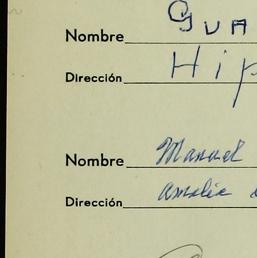 Nombre GUA
Dirección Hip
Nombre Manuel
Dirección Amelia